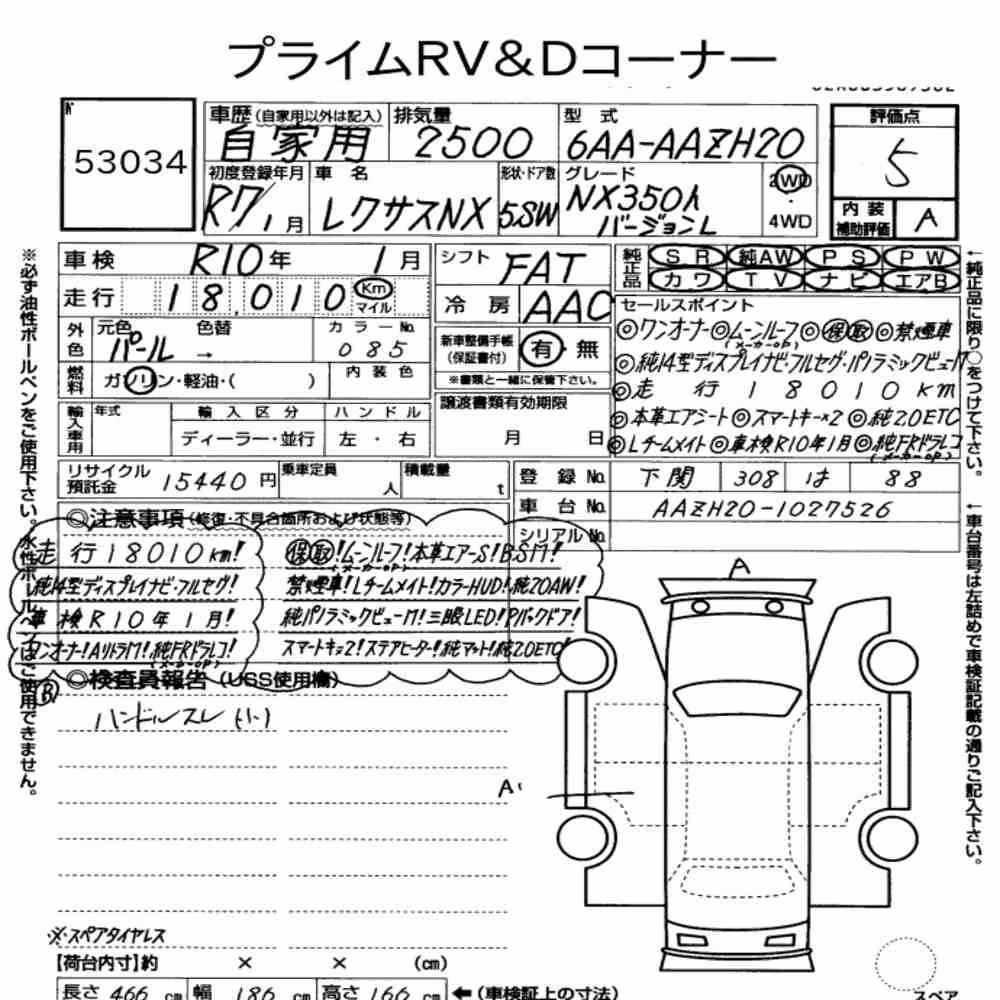 プライムRV&Dコーナー
№ 53034
車歴 (自家用以外は記入) 自家用
排気量 2500
型式 6AA-AAZH20
評価点 5
内装補助評価 A
初度登録年月 R7/1月
車名 レクサスNX
形状・ドア数 5.SW
グレード NX350h バージョンL
2WD・4WD
車検 R10年 1月
走行 18,010 Km マイル
シフト FAT
冷房 AAC
純正品 SR 純AW PS PW
カワ TV ナビ エアB
外色 元色 パール 色替 → カラーNo. 085
燃料 ガソリン・軽油・( ) 内装色
新車整備手帳(保証書付) 有・無
※書類と一緒に保管下さい。
セールスポイント
◎ワンオーナ◎ムーンルーフ◎保取◎禁煙車
(メーカーOP)
◎純14型ディスプレイナビ・フルセグ・パノラミックビューM
◎走行18010km
◎本革エアシート◎スマートキー×2◎純2.0ETC
◎Lチームメイト◎車検R10年1月◎純FRドラレコ
(メーカーOP)
輸入車用 年式 輸入区分 ディーラー・並行 ハンドル 左・右
譲渡書類有効期限 月 日
リサイクル預託金 15440円 乗車定員 人 積載量 t
登録No. 下関 308 は 88
車台No. AAZH20-1027526
シリアルNo.
◎注意事項(修復・不具合箇所および状態等)
走行18010km! 保取!ムーンルーフ!本革エアーS!BSM!
(メーカーOP)
純14型ディスプレイナビ・フルセグ! 禁煙車!Lチームメイト!カラーHUD!純20AW!
車検R10年1月! 純パノラミックビューM!三眼LED!Pバックドア!
ワンオーナー!AリトラM!純FRドラレコ! スマートキー×2!ステアヒーター!純マット!純2.0ETC!
(メーカーOP)
◎検査員報告(USS使用欄)
B
ハンドルスレ(ハ)
A
A1
※スペアタイヤレス
【荷台内寸】約 × × (cm)
長さ 466 cm 幅 186 cm 高さ 166 cm ←(車検証上の寸法)
スペア
※必ず油性ボールペンをご使用下さい。水性ボールペンはご使用できません。
←純正品に限り○をつけて下さい。
←車台番号は左詰めで車検証記載の通りご記入下さい。